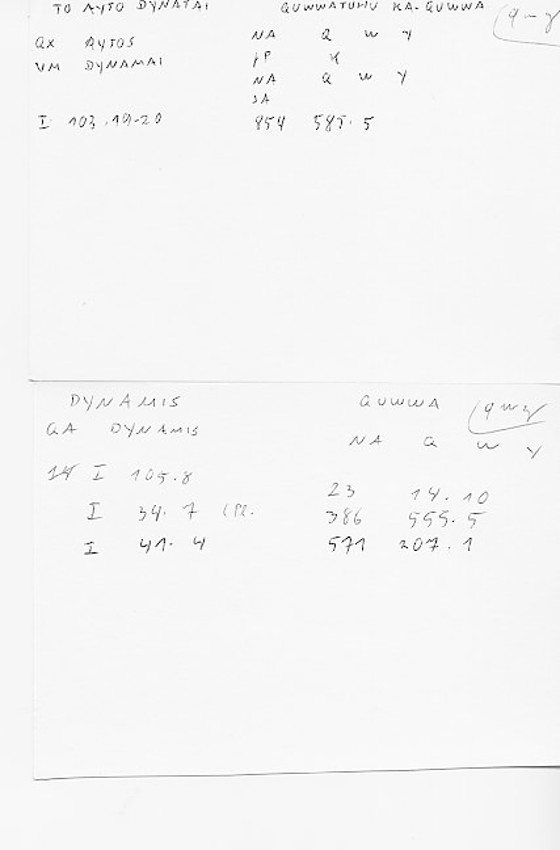 TO AYTO DYNATAI QUWWATUHU KA-QUWWA q-y
QX AYTOS NA Q W Y
VM DYNAMAI JP K
NA Q W Y
SA
I 103.19-20 854 585.5
DYNAMIS QUWWA qwy
QA DYNAMIS NA Q W Y
I 105.8 23 14.10
I 34.7 386 555.5
I 41.4 571 207.1